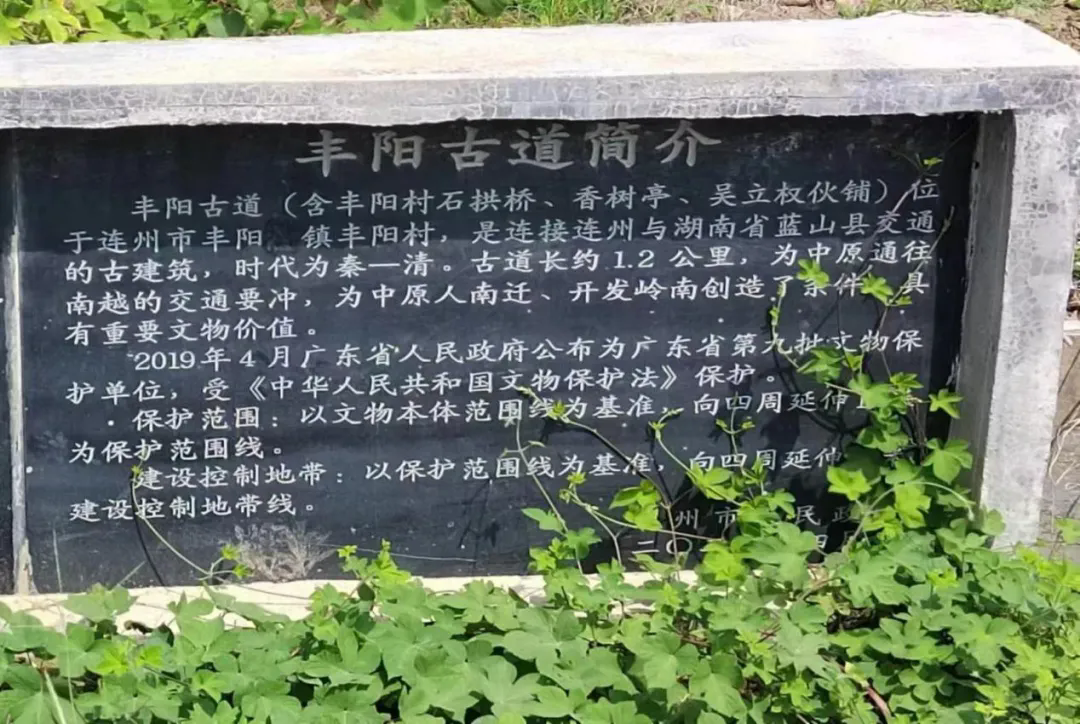 丰阳古道简介
丰阳古道（含丰阳村石拱桥、香树亭、吴立权伙铺）位
于连州市丰阳 镇丰阳村，是连接连州与湖南省蓝山县交通
的古建筑，时代为秦—清。古道长约1.2公里，为中原通往
南越的交通要冲，为中原人南迁、开发岭南创造了条件 具
有重要文物价值。
2019年4月广东省人民政府公布为广东省第九批文物保
护单位，受《中华人民共和国文物保护法》保护。
保护范围：以文物本体范围线为基准，向四周延伸
为保护范围线。
建设控制地带：以保护范围线为基准，向四周延伸
建设控制地带线。
州市 民政
二〇